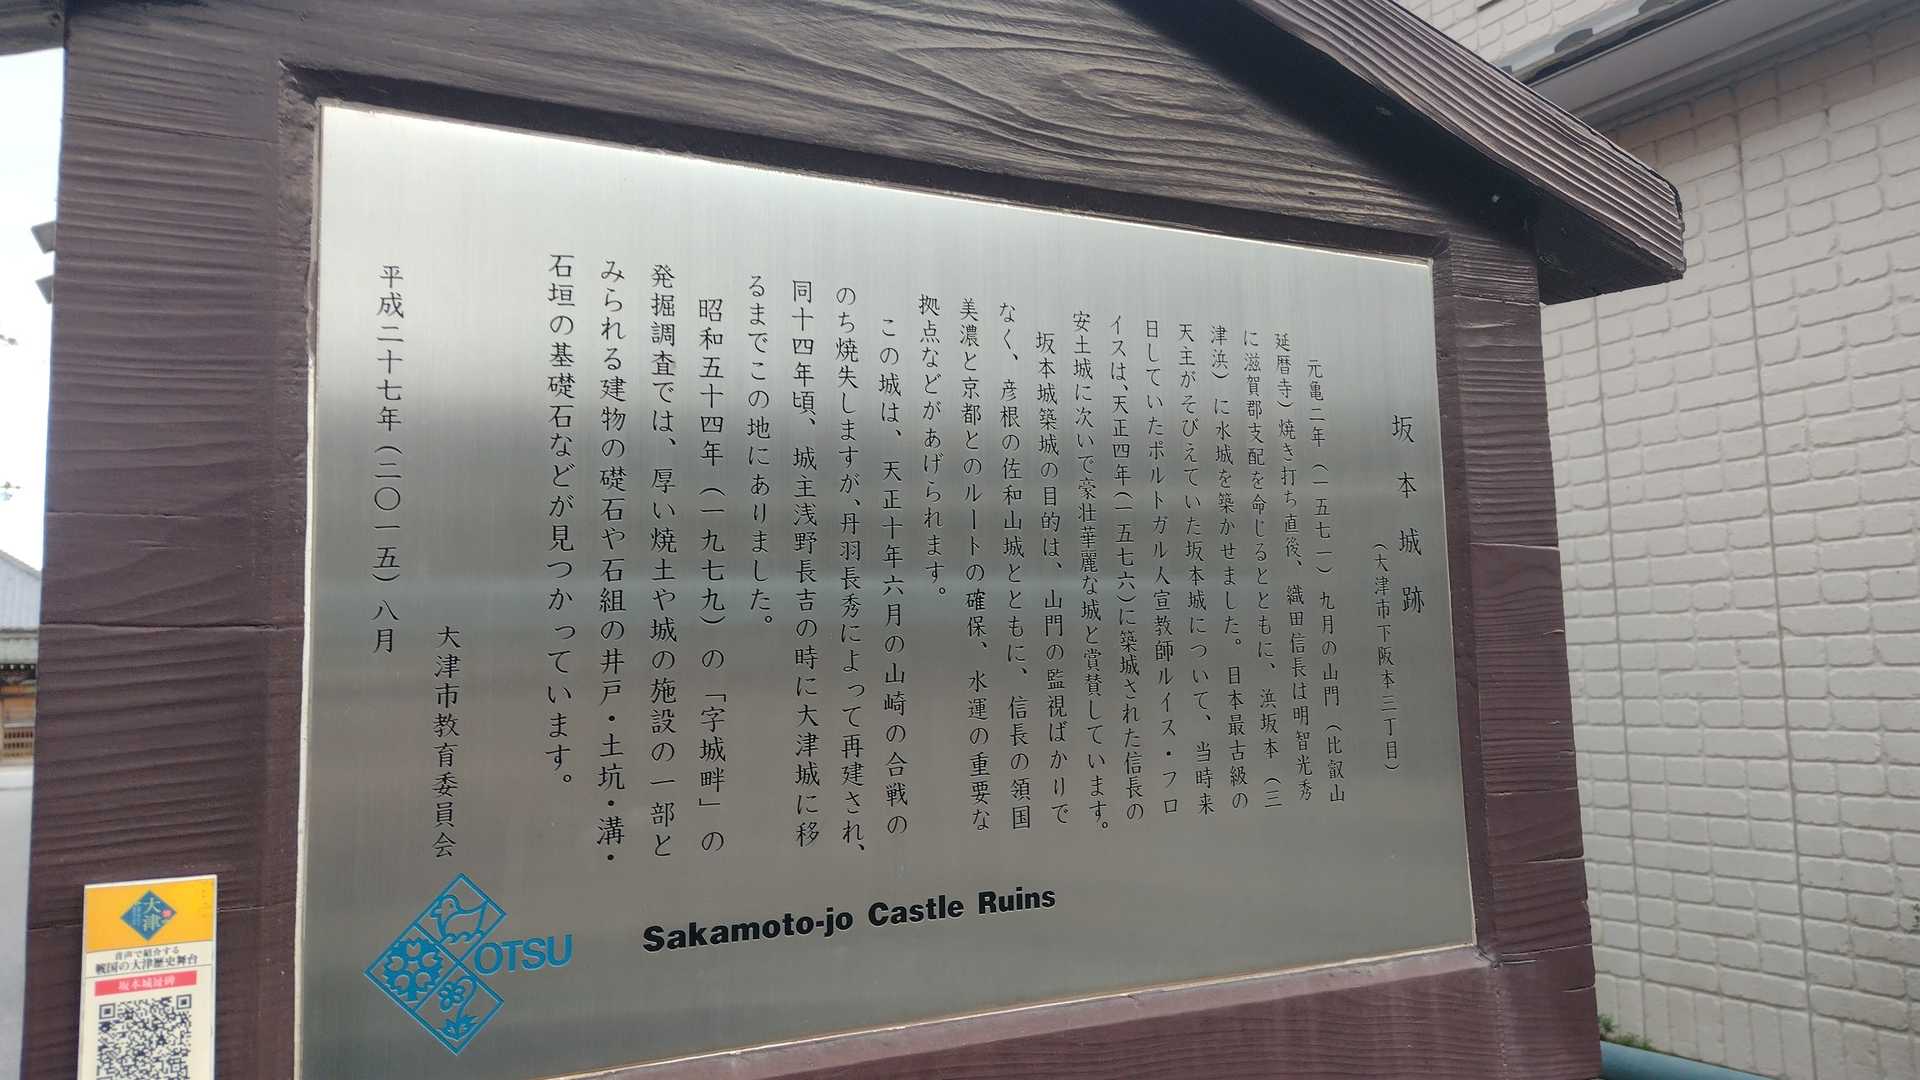 坂本城跡
（大津市下阪本三丁目）
元亀二年（一五七一）九月の山門（比叡山
延暦寺）焼き打ち直後、織田信長は明智光秀
に滋賀郡支配を命じるとともに、浜坂本（三
津浜）に水城を築かせました。日本最古級の
天主がそびえていた坂本城について、当時来
日していたポルトガル人宣教師ルイス・フロ
イスは、天正四年（一五七六）に築城された信長の
安土城に次いで豪壮華麗な城と賞賛しています。
坂本城築城の目的は、山門の監視ばかりで
なく、彦根の佐和山城とともに、信長の領国
美濃と京都とのルートの確保、水運の重要な
拠点などがあげられます。
この城は、天正十年六月の山崎の合戦の
のち焼失しますが、丹羽長秀によって再建され、
同十四年頃、城主浅野長吉の時に大津城に移
るまでこの地にありました。
昭和五十四年（一九七九）の「字城畔」の
発掘調査では、厚い焼土や城の施設の一部と
みられる建物の礎石や石組の井戸・土坑・溝・
石垣の基礎石などが見つかっています。
大津市教育委員会
平成二十七年（二〇一五）八月
Sakamoto-jo Castle Ruins
OTSU
大津
音声で紹介する
戦国の大津歴史舞台
坂本城址碑